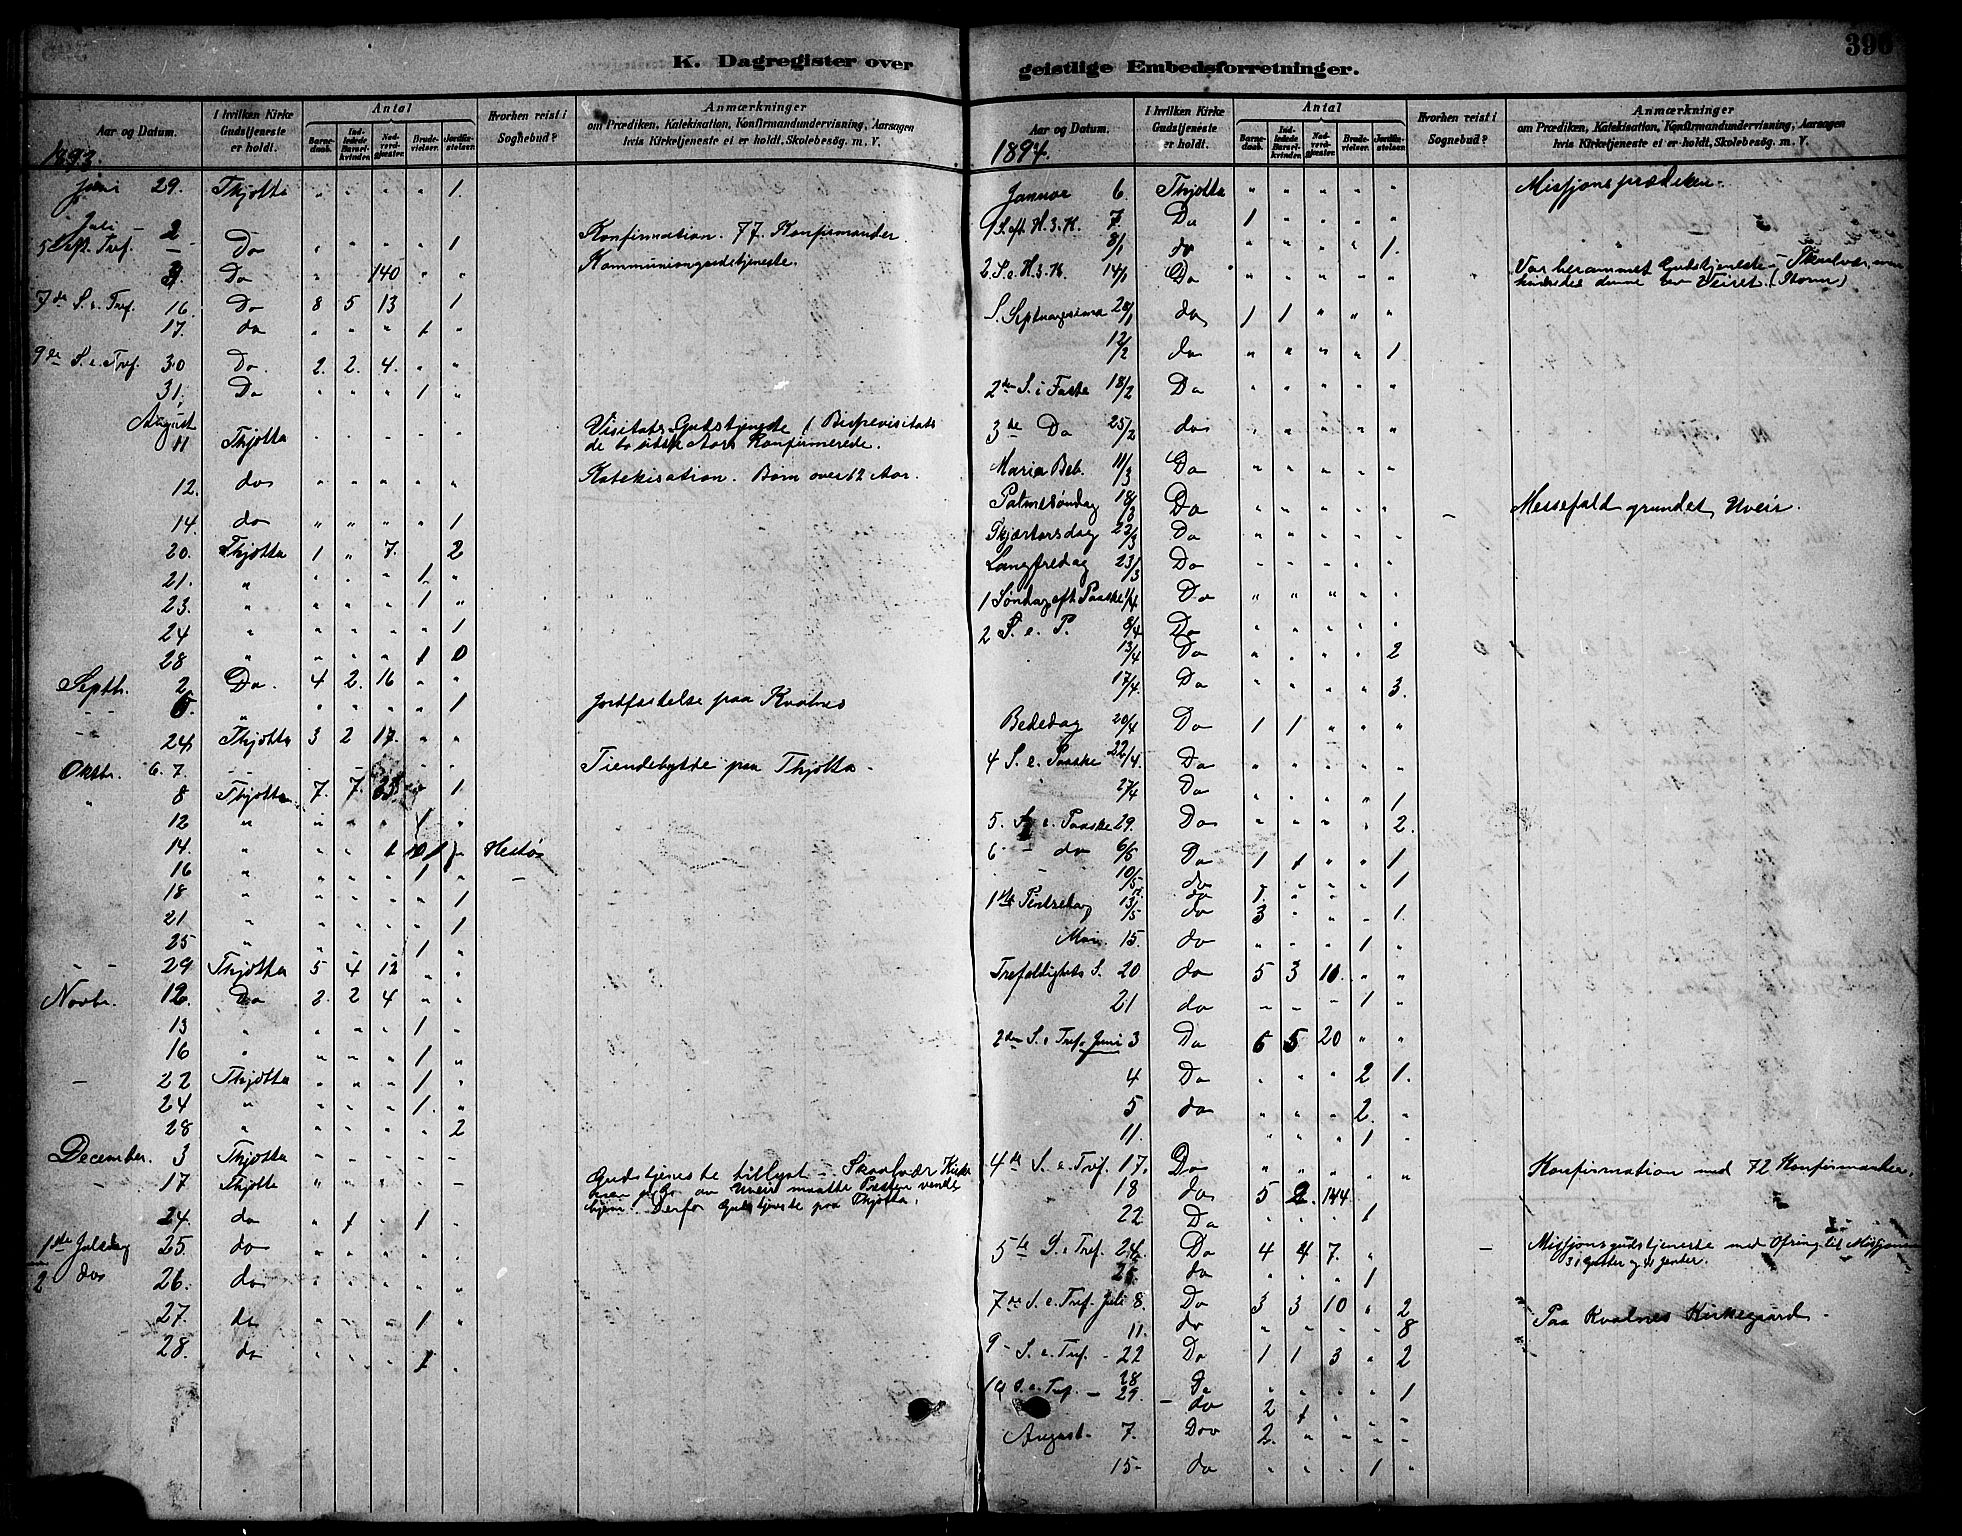 K. Dagregister over
Aar og Datum.
I hvilken Kirke Gudstjeneste er holdt.
Antal
Barnedaab.
Indledede Barselkvinder.
Nadverdgjester.
Brudevielser.
Jordfæstelser.
Hvorhen reist i Sognebud?
Anmærkninger
om Prædiken, Katekisation, Konfirmandundervisning, Aarsagen
hvis Kirketjeneste ei er holdt, Skolebesøg. m. V.
1893.
Juni 29. Thjøtta " " " " 1
Juli - 2
5 S. eft. Tref. - Do " " " " 1 Konfirmation. 77 Konfirmander.
3. Do " " 140 " " Kommuniongudstjeneste.
7de S. e. Tref. 16. Do 8 5 13 " 1
17. do " " " 1 "
9de S. e. Tref. 30 Do 2. 2. 4. " "
31. Do " " " 1 "
August
11 Thjøtta " " " " " Visitats Gudstjeneste
Konfirmerede.
12. do " " " " " Katekisation. Børn over 12 Aar.
14 do " " " " 1
20. Thjøtta 1 " 7. " 2
21. " " " " 1. "
23. " " " " 1 "
24 " " " " " 1
28 " " " " 1 0
Septbr. 2 Do. 4 2. 16 " "
- - 6. " " " " " 1 Jordfæstelse paa Kvalnes
- 24 Thjøtta 3 2 17. " "
Oktbr. 6. 7. Tiendebytte paa Thjøtta -
" 8 Thjøtta 7. 7. 23 " 1
12 " " " " 1 "
14. " " " 1 Hestø
16 " " " " 1 "
18 " " " " " 1
21 " " " " " 1
25 " " " " 1 "
- - 29 Thjøtta 5 4 12 " "
Novbr. 12. Do 2. 2 4 " "
13 " " " " 1 "
16 " " " " 1 "
- 22 Thjøtta " " " 1 "
24 " " " " 1. "
28 " " " " " 2
December. 3 Thjøtta - - - - -
- 17 Thjøtta " " " " - Gudstjeneste tillyst - Skaalvær Kirke
men af Uveir maatte Presten vende
hjem. Derfor Gudstjeneste paa Thjøtta.
24. do " 1 " 1 -
1ste Juledag 25. do " " " " "
2 do 26. do " " " " "
27. do " " " 1 "
28. do " " " 1 "
geistlige Embedsforretninger.
396
Aar og Datum.
I hvilken Kirke Gudstjeneste er holdt.
Antal
Barnedaab.
Indledede Barselkvinder.
Nadverdgjester.
Brudevielser.
Jordfæstelser.
Hvorhen reist i Sognebud?
Anmærkninger
om Prædiken, Katekisation, Konfirmandundervisning, Aarsagen
hvis Kirketjeneste ei er holdt, Skolebesøg. m. V.
1894.
Januar 6. Thjøtta " " " " " Missjonsprædiken.
1 S. eft. H. 3. K. 7. Do 1 " " " "
8/1 do " " " " 1.
2. S. e. H. 3. K. 14/1 Do " " " " " Var berammet Gudstjeneste - Skaalvær, men
hindredes denne av Veiret. (Storm)
S. Septuagesima 28/1 do 1 1 " " "
12/2 do " " " " 1.
2den S. i Faste 18/2 Do " " " " "
3de Do 25/2 do " " " " "
Maria Beb. 11/3 Do " " " " "
Palmesøndag 18/3 Do " " " " " - Messefald grundet Uveir.
Skjærtorsdag 22/3 Do " " " " "
Langfredag 23/3 Do " " " " "
1 Søndag eft Paaske 1/4 Do " " " " "
2 S. e. P. 8/4 Do " " " " "
13/4 Do " " " " 2
17/4. Do " " " " 3.
Bededag 20/4 Do 1 1 " " "
4 S. e. Paaske 22/4. Do " " " " "
27/4 Do " " " " 1
5. S. e. Paaske 29. Do " " " " 2.
6 - do 6/5 Do 1 1 " " 1
10/5 do " " " " 1
do 1. " " "
1ste Pintsedag 13/5 do 3 " " " 1.
Mai. 15. do " " " 1 "
Trefoldigheds S. 20 do 5 3 10. " "
21 do - - " 1 "
2den S. e. Tref. Juni 3 Do 6 5 20 " "
4 Do " " " 2 1.
5 do " " " 2. "
11. " " " 1 "
4de S. e. Tref. 17. Do " " " " " Konfirmation med 72 Konfirmander.
18 do 5 2. 144
22 Do " " " 1
5te S. e. Tref. 24. Do 4 4 7. " - Missjonsgudstjeneste med Ofring til Missjonen
31 Gutter og 41 Jenter.
25. do " " " 1
7de S. e. Tref. Juli 8. Do 3 3 10 " 2
11. do " " " " 8 Paa Kvalnes Kirkegaard.
9 - S. e. Tref. - 22 Do 1 1 3 " 2
28 Do " " " " 1
10 S. e. Tref. - 29 - do 2 1 " " "
August. 7. Do 2. " " " "
15- do " " " 1 "